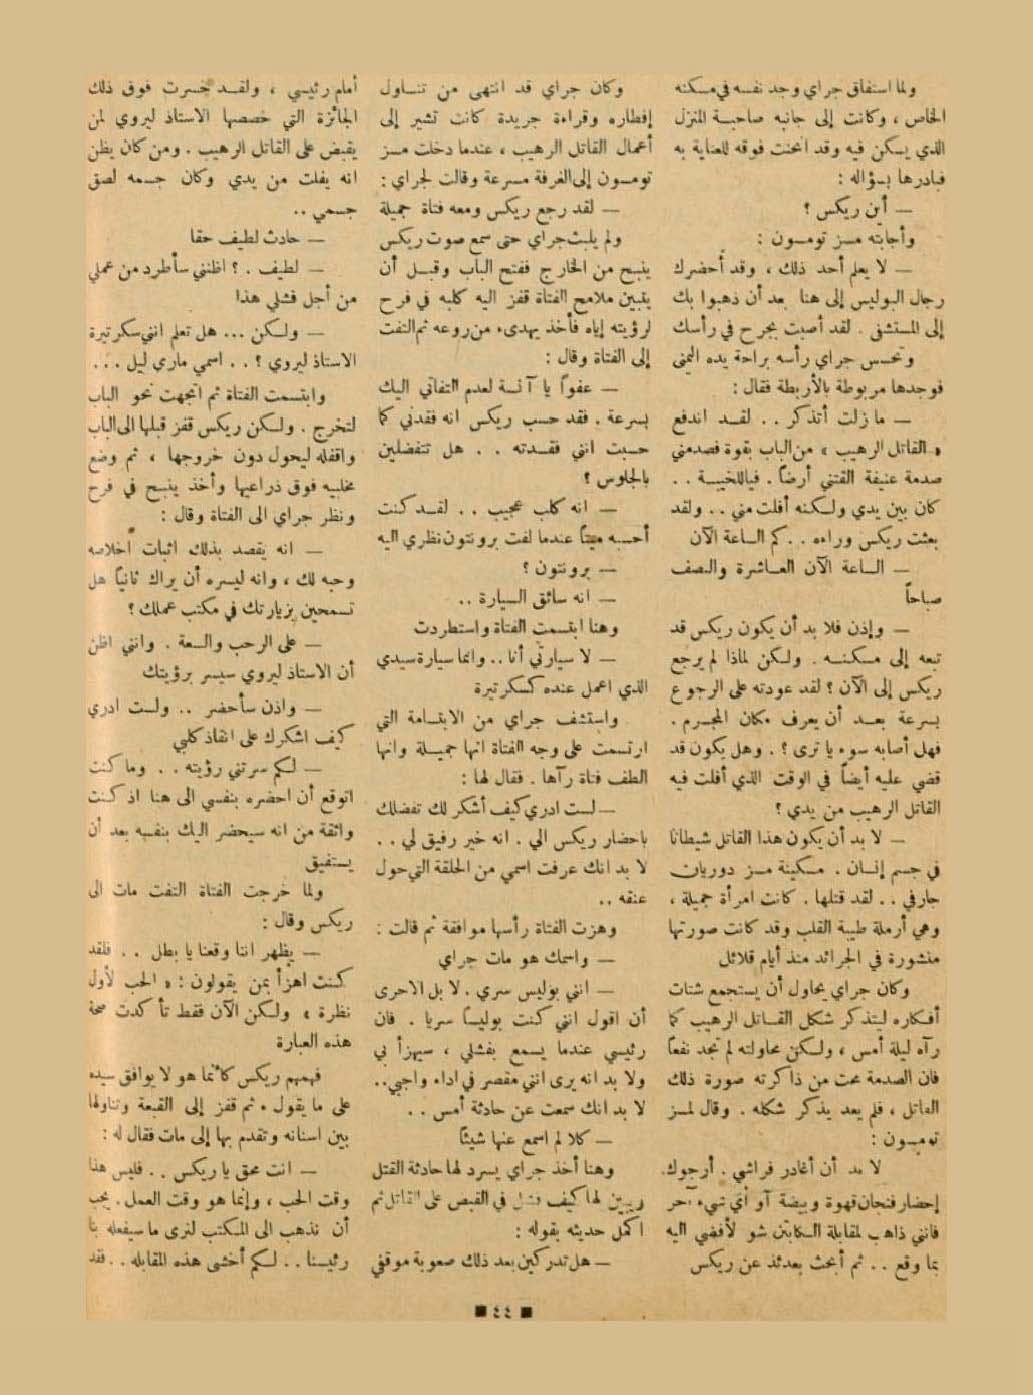 ولما استفاق جراي وجد نفسه في مسكنه
الخاص ، وكانت إلى جانبه صاحبة المنزل
الذي يسكن فيه وقد انحنت فوقه للعناية به
فبادرها بسؤاله :
— أين ريكس ؟
وأجابته مسز تومسون :
— لا يعلم أحد ذلك ، وقد أحضرك
رجال البوليس إلى هنا بعد أن ذهبوا بك
إلى المستشفى . لقد أصبت بجرح في رأسك
وتحسس جراي رأسه براحة يده اليمنى
فوجدها مربوطة بالأربطة فقال :
— ما زلت أتذكر .. لقد اندفع
« القاتل الرهيب » من الباب بقوة فصدمني
صدمة عنيفة القتني أرضاً . فياللخيبة ..
كان بين يدي ولكنه أفلت مني .. ولقد
بعثت ريكس وراءه .. كم الساعة الآن
— الساعة الآن العاشرة والنصف
صباحاً
— وإذن فلا بد أن يكون ريكس قد
تبعه إلى مسكنه . ولكن لماذا لم يرجع
ريكس إلى الآن ؟ لقد عودته على الرجوع
بسرعة بعد أن يعرف مكان المجرم .
فهل أصابه سوء يا ترى ؟ . وهل يكون قد
قضي عليه أيضاً في الوقت الذي أفلت فيه
القاتل الرهيب من يدي ؟
— لا بد أن يكون هذا القاتل شيطانا
في جسم إنسان . مسكينة مسز دوريان
جارفي .. لقد قتلها . كانت امرأة جميلة ،
وهي أرملة طيبة القلب وقد كانت صورتها
منشورة في الجرائد منذ أيام قلائل
وكان جراي يحاول أن يستجمع شتات
أفكاره ليتذكر شكل القاتل الرهيب كما
رآه ليلة أمس ، ولكن محاولته لم تجد نفعاً
فان الصدمة محت من ذاكرته صورة ذلك
القاتل ، فلم يعد يذكر شكله . وقال لمسز
تومسون :
لا بد أن أغادر فراشي . أرجوك
إحضار فنجان قهوة وبيضة أو أي شيء آخر
فانني ذاهب لمقابلة الكابتن شو لأفضي اليه
بما وقع .. ثم أبحث بعدئذ عن ريكس
وكان جراي قد انتهى من تناول
إفطاره وقراءة جريدة كانت تشير إلى
أعمال القاتل الرهيب ، عندما دخلت مسز
تومسون إلى الغرفة مسرعة وقالت لجراي :
— لقد رجع ريكس ومعه فتاة جميلة
ولم يلبث جراي حتى سمع صوت ريكس
ينبح من الخارج ففتح الباب وقبل أن
يتبين ملامح الفتاة قفز اليه كلبه في فرح
لرؤيته إياه فأخذ يهدىء من روعه ثم التفت
إلى الفتاة وقال :
— عفواً يا آنسة لعدم التفاتي اليك
بسرعة . فقد حسب ريكس انه فقدني كما
حسبت انني فقدته .. هل تتفضلين
بالجلوس ؟
— انه كلب عجيب .. لقد كنت
أحسبه ميتاً عندما لفت برونتون نظري اليه
— برونتون ؟
— انه سائق السيارة ..
وهنا ابتسمت الفتاة واستطردت
— لا سيارتي أنا .. وانما سيارة سيدي
الذي اعمل عنده كسكرتيرة
واستشف جراي من الابتسامة التي
ارتسمت على وجه الفتاة انها جميلة وانها
الطف فتاة رآها . فقال لها :
— لست ادري كيف أشكر لك تفضلك
باحضار ريكس الي . انه خير رفيق لي ..
لا بد انك عرفت اسمي من الحلقة التي حول
عنقه ..
وهزت الفتاة رأسها موافقة ثم قالت :
— واسمك هو مات جراي
— انني بوليس سري . لا بل الاحرى
أن اقول انني كنت بوليساً سريا . فان
رئيسي عندما يسمع بفشلي ، سيهزأ بي
ولا بد انه يرى انني مقصر في اداء واجبي..
لا بد انك سمعت عن حادثة أمس ..
— كلا لم اسمع عنها شيئاً
وهنا أخذ جراي يسرد لها حادثة القتل
ويبين لها كيف فشل في القبض على القاتل ثم
اكمل حديثه بقوله :
— هل تدركين بعد ذلك صعوبة موقفي
أمام رئيسي ، ولقد خسرت فوق ذلك
الجائزة التي خصصها الاستاذ ليروي لمن
يقبض على القاتل الرهيب . ومن كان يظن
انه يفلت من يدي وكان جسمه لصق
جسمي ..
— حادث لطيف حقا
— لطيف . ؟ اظنني سأطرد من عملي
من أجل فشلي هذا
— ولكن ... هل تعلم انني سكرتيرة
الاستاذ ليروي ؟ .. اسمي ماري ليل ...
وابتسمت الفتاة ثم اتجهت نحو الباب
لتخرج . ولكن ريكس قفز قبلها الى الباب
واقفله ليحول دون خروجها ، ثم وضع
مخلبيه فوق ذراعيها وأخذ ينبح في فرح
ونظر جراي الى الفتاة وقال :
— انه يقصد بذلك اثبات اخلاصه
وحبه لك ، وانه ليسره أن يراك ثانياً هل
تسمحين بزيارتك في مكتب عملك ؟
— على الرحب والسعة . وانني اظن
أن الاستاذ ليروي سيسر برؤيتك
— واذن سأحضر .. ولست ادري
كيف اشكرك على انقاذ كلبي
— لكم سرتني رؤيته .. وما كنت
اتوقع أن احضره بنفسي الى هنا اذ كنت
واثقة من انه سيحضر اليك بنفسه بعد أن
يستفيق
ولما خرجت الفتاة التفت مات الى
ريكس وقال :
— يظهر اننا وقعنا يا بطل .. فلقد
كنت اهزأ بمن يقولون : « الحب لأول
نظرة » ولكن الآن فقط تأكدت صحة
هذه العبارة
فهمهم ريكس كأنما هو لا يوافق سيده
على ما يقول . ثم قفز إلى القبعة وتناولها
بين اسنانه وتقدم بها إلى مات فقال له :
— انت محق يا ريكس .. فليس هذا
وقت الحب ، وإنما هو وقت العمل . يجب
أن نذهب الى المكتب لنرى ما سيفعله بنا
رئيسنا .. لكم أخشى هذه المقابلة .. فقد
■ ٤٤ ■